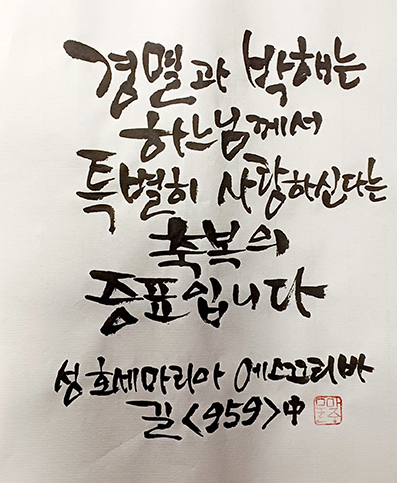 경멸과 박해는
하느님께서
특별히 사랑하신다는
축복의
증표입니다
성 호세마리아 에스끄리바
길<959>中